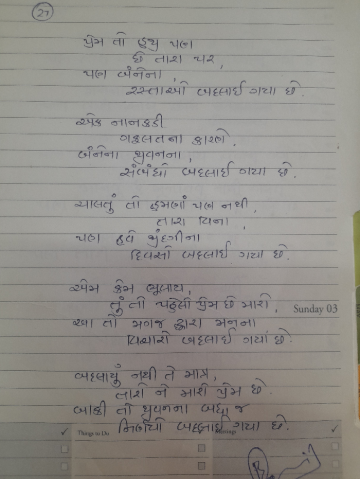 27
પ્રેમ તો હજુ પણ
છે તારા પર,
પણ બંનેના,
રસ્તાઓ બદલાઈ ગયા છે.
એક નાનકડી
ગફલતના કારણે,
બંનેના જીવનના,
સંબંધો બદલાઈ ગયા છે.
ચાલતું તો હમણાં પણ નથી,
તારા વિના,
પણ હવે જીંદગીના
દિવસો બદલાઈ ગયા છે.
એમ કેમ ભુલાય,
તું તો પહેલો પ્રેમ છે મારો,
Sunday 03
આ તો મગજ દ્વારા મનના
વિચારો બદલાઈ ગયાં છે.
બદલાયું નથી તે માત્ર,
તારો ને મારો પ્રેમ છે.
બાકી તો જીવનના બધા જ
નિર્ણયો બદલાઈ ગયા છે.
Things to Do